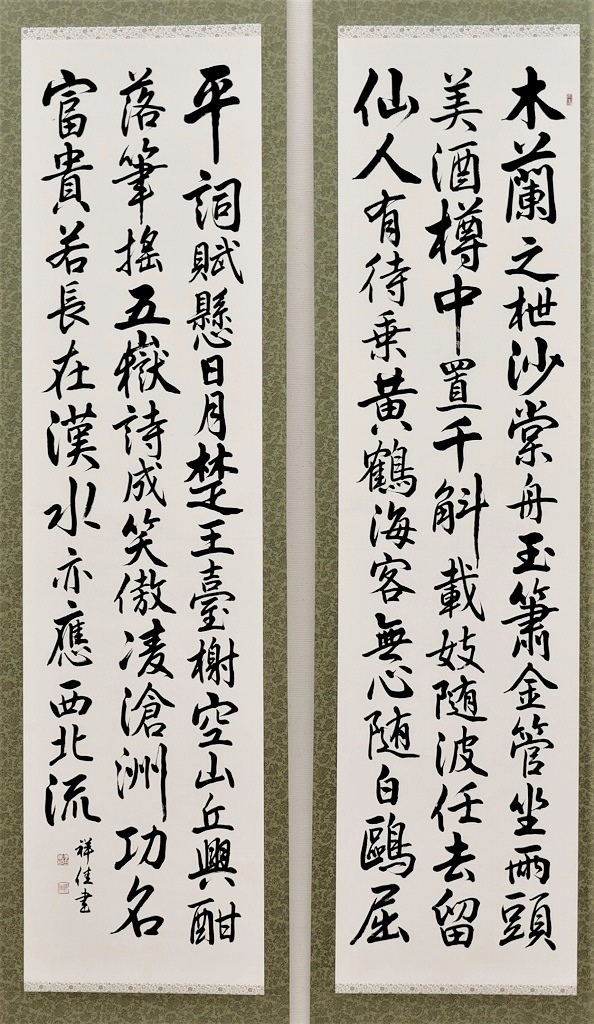 木蘭之枻沙棠舟玉簫金管坐兩頭
美酒樽中置千斛載妓随波任去留
仙人有待乗黃鶴海客無心随白鷗屈
平詞賦懸日月楚王臺榭空山丘興酣
落筆搖五嶽詩成笑傲凌滄洲功名
富貴若長在漢水亦應西北流
祥佳書